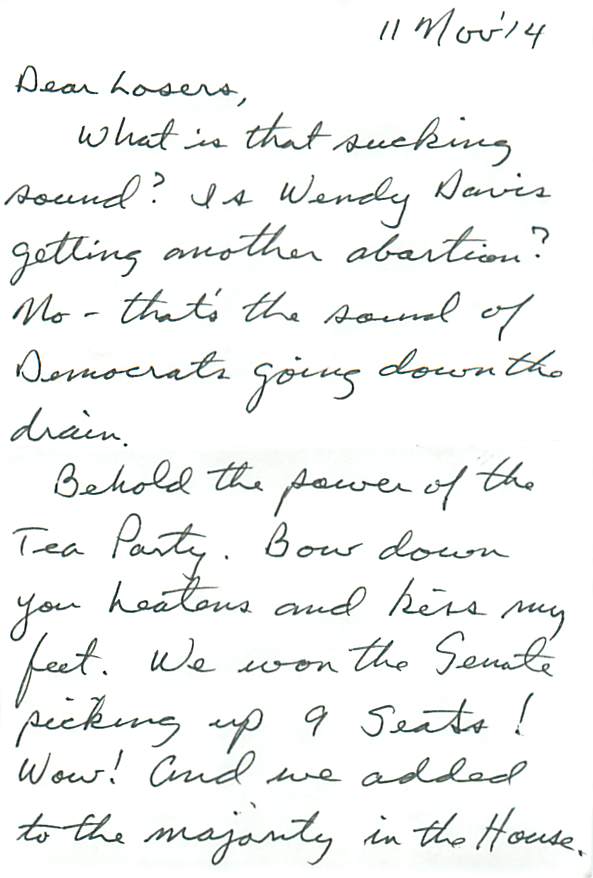 11 Nov '14
Dear Losers,
What is that sucking
sound? Is Wendy Davis
getting another abortion?
No - that's the sound of
Democrats going down the
drain.
Behold the power of the
Tea Party. Bow down
you heatens and kiss my
feet. We won the Senate
picking up 9 seats!
Wow! And we added
to the majority in the House.